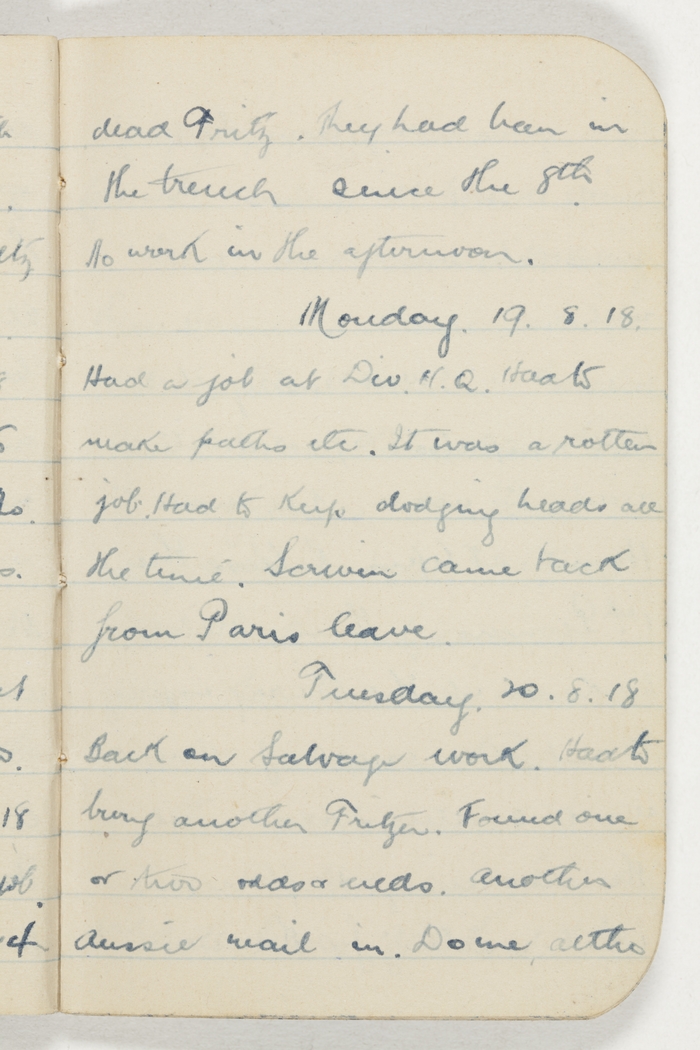 dead Fritz. They had been in
the trench since the 8th.
No work in the afternoon.
Monday. 19. 8. 18.
Had a job at Div. H.Q. Had to
make paths etc. It was a rotten
job. Had to keep dodging heads all
the time. Scriven came back
from Paris leave.
Tuesday. 20. 8. 18
Back on Salvage work. Had to
bury another Fritzer. Found one
or two odds & ends. Another
Aussie mail in. Do me, altho